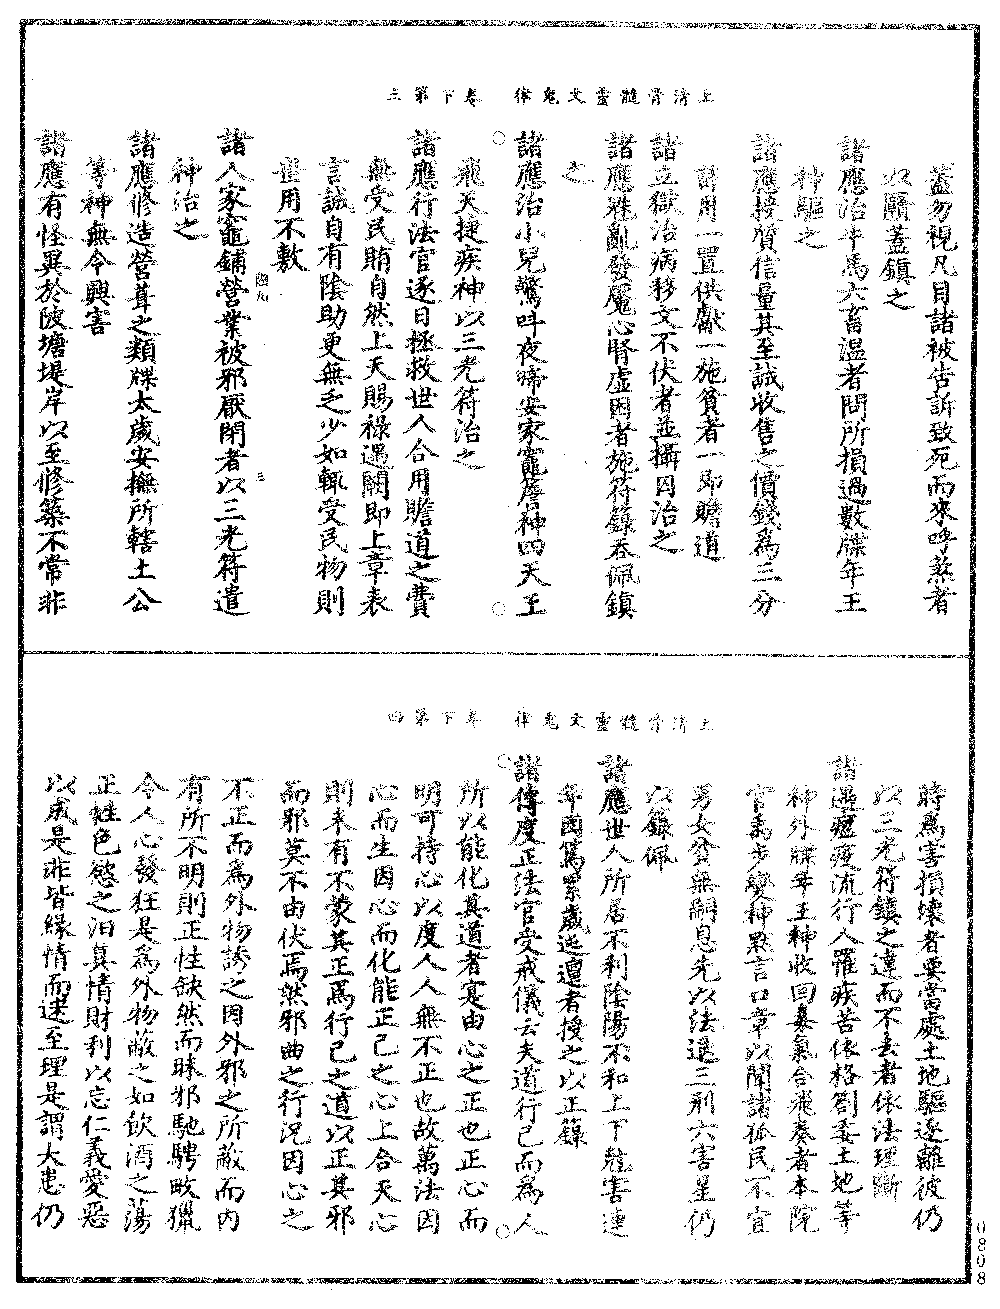 上清骨髓靈文鬼律　卷下第三
蓋勿視凡目諸被告訴致死而來呼煞者
以願蓋鎮之
諸應治牛馬六畜溫者問所損過數牒年王
神驅之
諸應接質信量其至誠收售之價錢為三分
詳用一置供獻一施貧者一即贍道
諸立獄治病移文不伏者並攝囚治之
諸應殊亂發魘心腎虛困者施符籙吞佩鎮
之
諸應治小兒驚叫夜啼安家竈詹神四天王
飛天捷疾神以三光符治之
諸應行法官逐日拯救世人合用贍道之費
無受民賄自然上天賜祿遇闕即上章表
言誠自有陰助更無乏少如輒受民物則
量用不敷
諸人家竈鋪營業被邪厭閉者以三光符遣
神治之
諸應修造營葺之類牒太歲安撫所轄土公
等神無令興害
諸應有怪異於陂塘堤岸以至修築不常非
上清骨髓靈文鬼律　卷下第四
時為害損壞者要當處土地驅逐離彼仍
以三光符鎮之違而不去者依法理斷
諸遇瘟疫流行人罹疾苦依格劄委土地等
神外牒年王神收回毒氣合飛奏者本院
官禹步變神默言口章以聞諸孤民不宜
男女貧無嗣息先以法退三刑六害星仍
以籙佩
諸應世人所居不利陰陽不和上下尅害連
年困篤累歲迍邅者授之以正籙
諸傳度正法官受戒儀云夫道行己而為人
所以能化其道者寔由心之正也正心而
明可持心以度人人無不正也故萬法因
心而生因心而化能正己之心上合天心
則未有不蒙其正焉行己之道以正其邪
而邪莫不由伏焉然邪曲之行況因心之
不正而為外物誘之因外邪之所敵而內
有所不明則正性缺然而昧邪馳騁畋獵
令人心發狂是為外物蔽之如飲酒之蕩
正性色慾之汨真情財利以忘仁義愛惡
以成是非皆緣情而迷至理是謂大患仍
0808